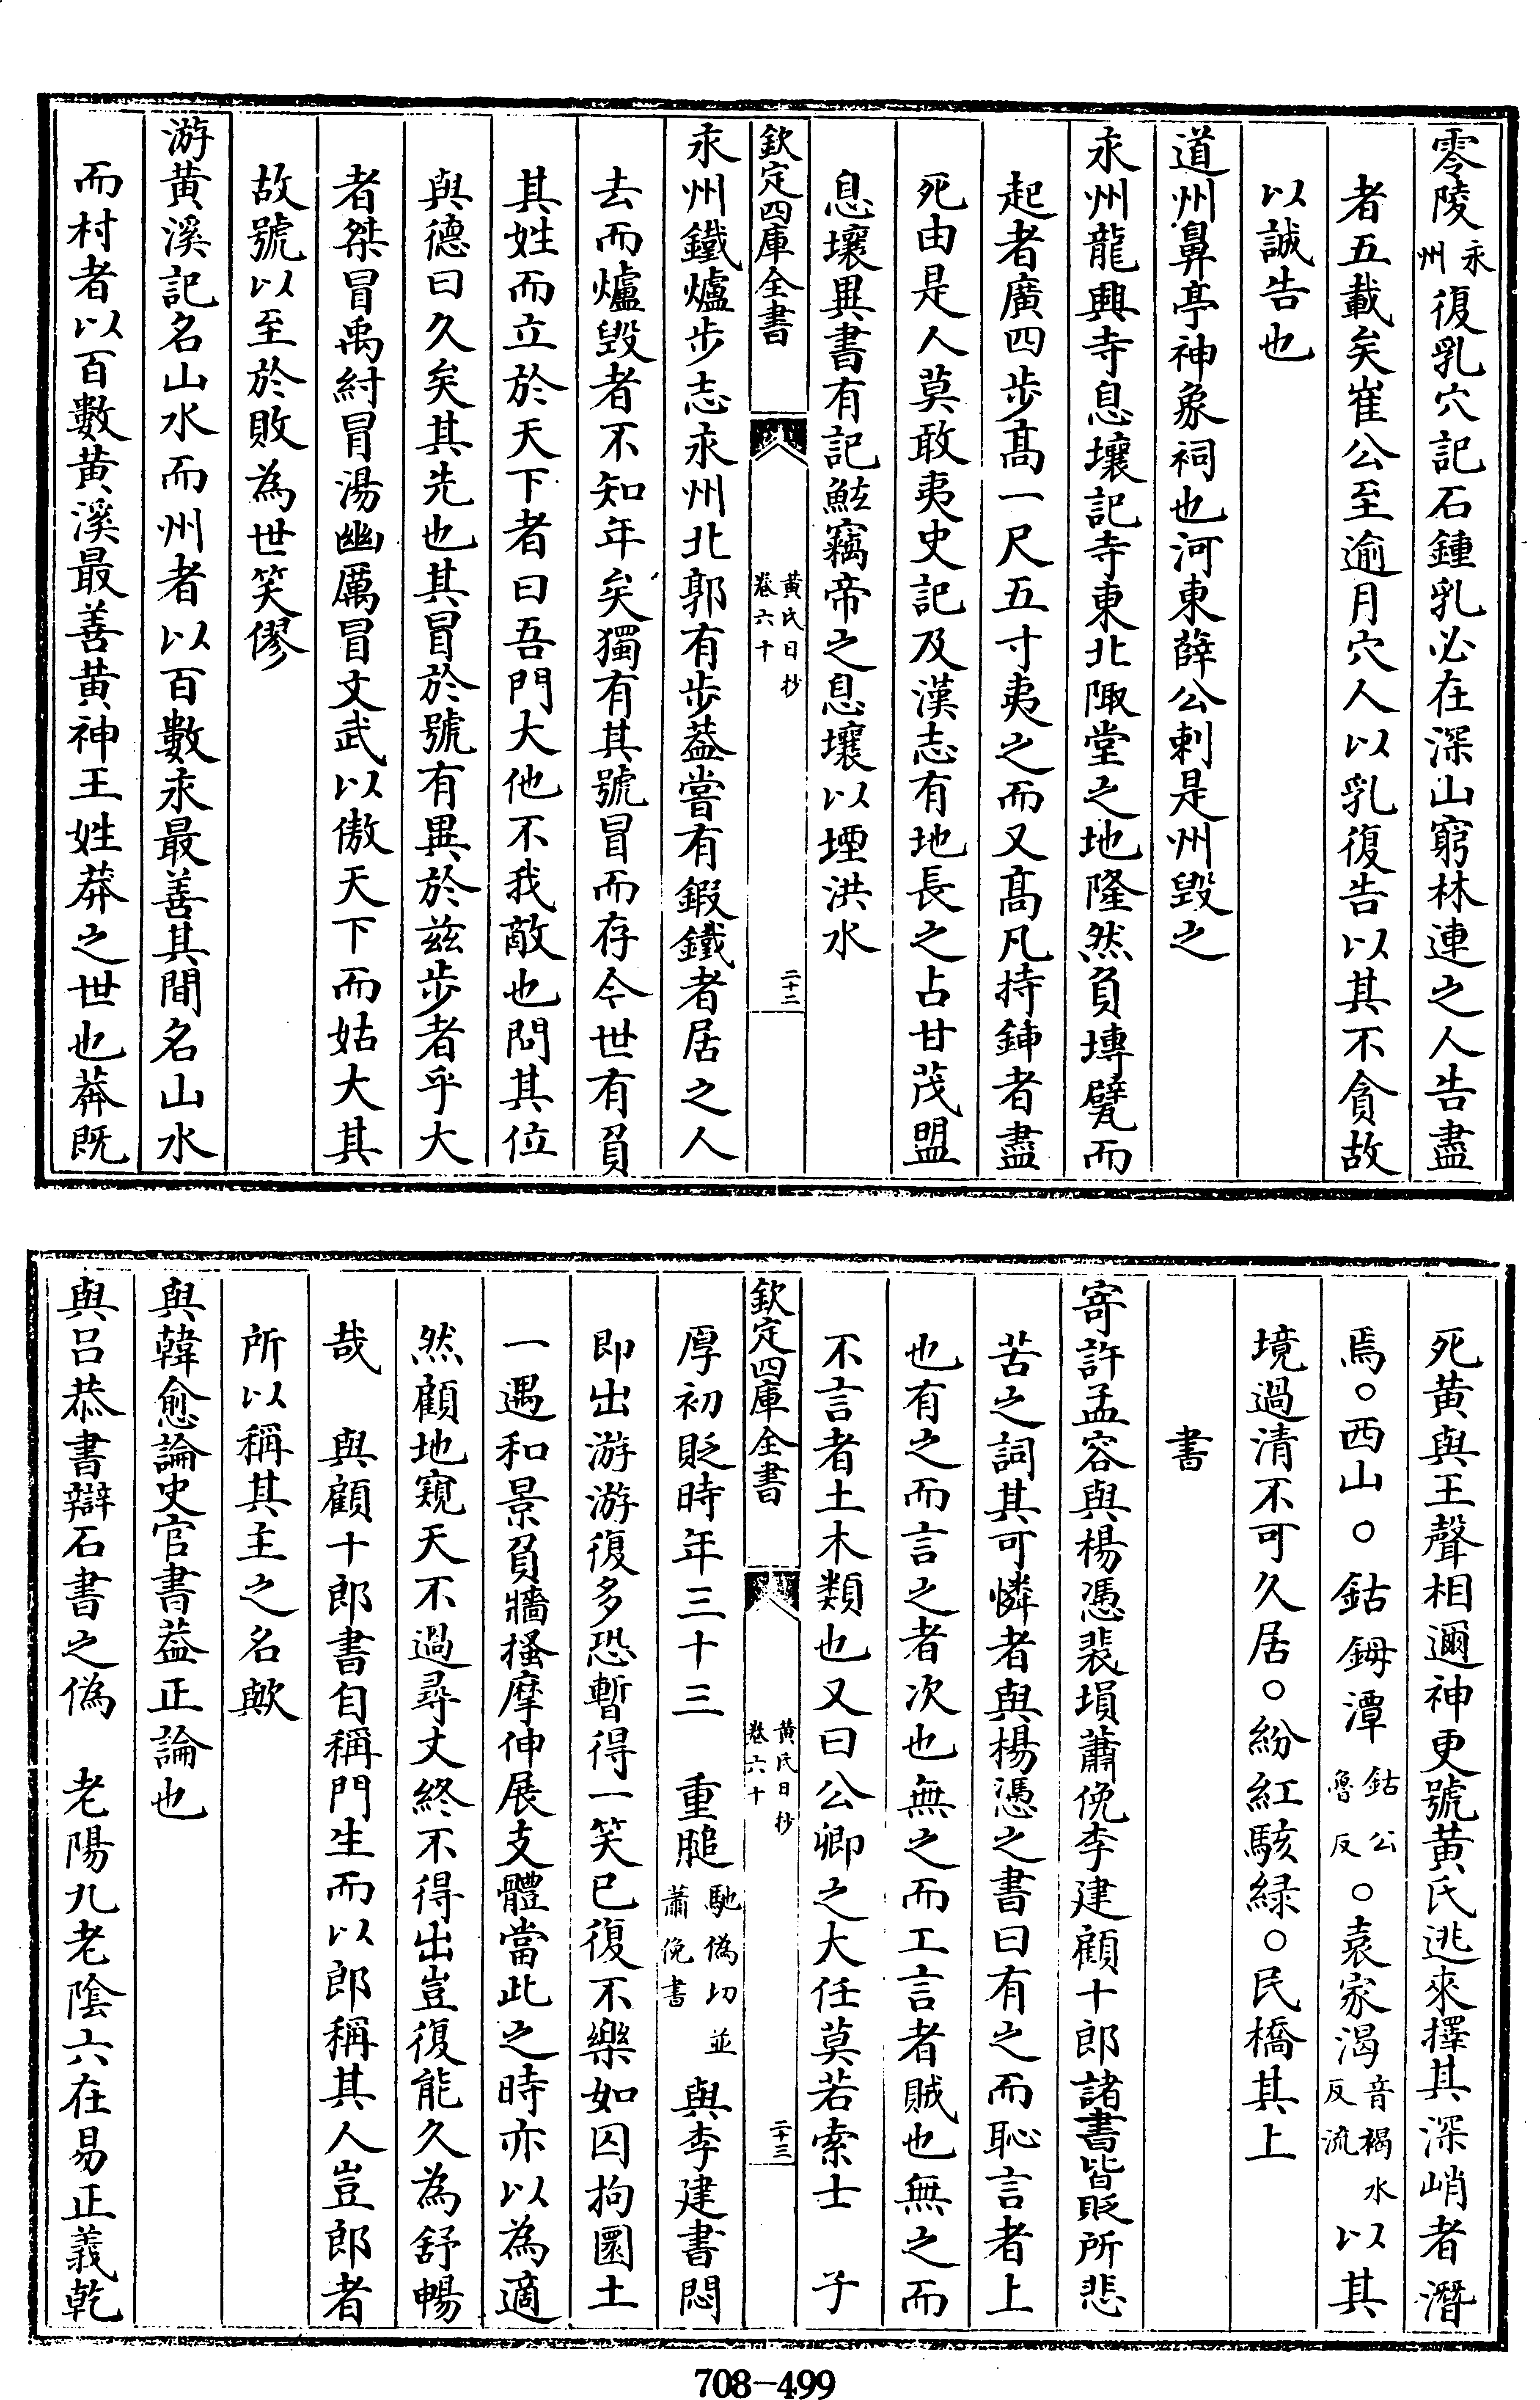 零陵永州復乳穴記石鍾乳必在深山窮林連之人告盡
者五載矣崔公至逾月穴人以乳復告以其不貪故
以誠告也
道州鼻亭神象祠也河東薛公刺是州毀之
永州龍興寺息壤記寺東北陬堂之地隆然負塼甓而
起者廣四步髙一尺五寸夷之而又髙凡持鍤者盡
死由是人莫敢夷史記及漢志有地長之占甘茂盟
息壤異書有記鯀竊帝之息壤以堙洪水
欽定四庫全書
黄氏日抄
卷六十
二十二
永州鐵爐步志永州北郭有步葢嘗有鍜鐵者居之人
去而爐毀者不知年矣獨有其號冒而存今世有負
其姓而立於天下者曰吾門大他不我敵也問其位
與德曰久矣其先也其冒於號有異於兹步者乎大
者桀冒禹紂冒湯幽厲冒文武以傲天下而姑大其
故號以至於敗為世笑僇
游黄溪記名山水而州者以百數永最善其間名山水
而村者以百數黄溪最善黄神王姓莽之世也莽既
死黄與王聲相邇神更號黄氏逃來擇其深峭者潛
焉○西山○鈷鉧潭鈷公魯反○袁家渴音褐水反流以其
境過清不可久居○紛紅駭緑○民橋其上
書
寄許孟容與楊憑裴塤蕭俛李建顧十郎諸書皆貶所悲
苦之詞其可憐者與楊憑之書曰有之而恥言者上
也有之而言之者次也無之而工言者賊也無之而
不言者土木類也又曰公卿之大任莫若索士 子
欽定四庫全書
黄氏日抄
卷六十
二十三
厚初貶時年三十三 重膇馳偽切並蕭俛書 與李建書悶
即出游游復多恐暫得一笑已復不樂如囚拘圜土
一遇和景負牆搔摩伸展支體當此之時亦以為適
然顧地窺天不過尋丈終不得出豈復能久為舒暢
哉 與顧十郎書自稱門生而以郎稱其人豈郎者
所以稱其主之名歟
與韓愈論史官書葢正論也
與吕恭書辯石書之偽 老陽九老陰六在易正義乾
708-499